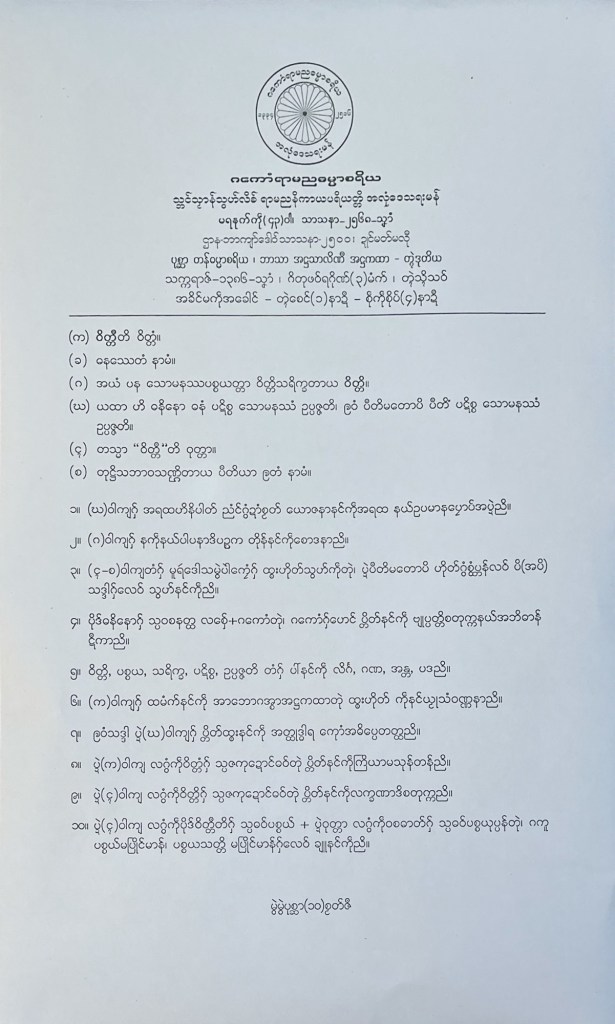 ဂကောံရာမညဓမ္မာစရိယ
၁၉၉၄
၂၅၁၆
အလုံဒေသရးမန်
ဂကောံရာမညဓမ္မာစရိယ
သ္ဘင်သၠာန်သွဟ်လိခ် ရာမညနိကာယပရိယတ္တိ အလုံဒေသရးမန်
မရနုက်ကဵု(၄၃)ဝါ။ သာသနာ-၂၅၆၈-သၞာံ
ဌာန-ဘာကျာ်ဒေါဝ်သာသနာ-၂၅၀၀၊ ဍုၚ်မတ်မလီု
ပုစ္ဆာ တန်ဓမ္မာစရိယ ၊ ဘာသာ အဋ္ဌသာလိဏီ အဋ္ဌကထာ - တွဲဒုတိယ
သက္ကရာဇ်-၁၃၈၆-သၞာံ ၊ ဂိတုဖဝ်ရဂိုဏ်(၃)မံက် ၊ တ္ၚဲသိုၚ်သဝ်
အခိၚ်မကဵုအခေါၚ် - တ္ၚဲစေၚ်(၁)နာဍဳ - စိုကဵုစိုပ်(၄)နာဍဳ
(က) ဝိတ္တီတိ ဝိတ္တံ။
(ခ) ဓနဿေတံ နာမံ။
(ဂ) အယံ ပန သောမနဿပစ္စယတ္တာ ဝိတ္တိသရိက္ခတာယ ဝိတ္တိ။
(ဃ) ယထာ ဟိ ဓနိနော ဓနံ ပဋိစ္စ သောမနဿံ ဥပ္ပဇ္ဇတိ၊ ဧဝံ ပီတိမတောပိ ပီတိံ ပဋိစ္စ သောမနဿံ
ဥပ္ပဇ္ဇတိ။
(င) တသ္မာ “ဝိတ္တီ”တိ ဝုတ္တာ။
(စ) တုဋ္ဌိသဘာဝသဏ္ဌိတာယ ပီတိယာ ဧတံ နာမံ။
၁။ (ဃ)ဝါကျဂှ် အရထဟိနိပါတ် ညံၚ်ဂွံဍာံစၟတ် ယောဇနာနၚ်ကဵုအရထ နယ်ဥပမာနပၠောပ်အပ္ဍဲညိ။
၂။ (ဂ)ဝါကျဂှ် နကဵုနယ်ပါပနာဒိပဥ္စက တိုန်နၚ်ကဵုစောဒနာညိ။
၃။ (င-စ)ဝါကျတံဂှ် မူရ
သဒ္ဒါဂှ်လေဝ် သွဟ်နၚ်ကဵုညိ။
၄။ ပိုဒ်ဓနိနောဂှ် သ္ပဝစနတ္ထ
ဋီကာညိ။
၅။ ဝိတ္တိ, ပစ္စယ, သရိက္ခ, ပဋိစ္စ, ဥပ္ပဇ္ဇတိ တံဂှ် ပါ်နၚ်ကဵု လိၚ်္ဂ, ဂဏ, အန္တ, ပဒညိ။
၆။ (က)ဝါကျဂှ် ထမံက်နၚ်ကဵု အာဘောဂအွာအဋ္ဌကထာတုဲ ထ္ၜးဟိုတ် ကဵုနၚ်ယုၟသံဝဏ္ဏနာညိ။
၇။ ဧဝံသဒ္ဒါ ပ္ဍဲ(ဃ)ဝါကျဂှ် ပ္တိတ်ထ္ၜးနၚ်ကဵု အတ္ထုဒ္ဓါရ ကေုာံအဓိပ္ပေတတ္ထညိ။
၈။ ပ္ဍဲ(က)ဝါကျ လဂွံကဵုဝိတ္တံဂှ်
၉။ ပ္ဍဲ(င)ဝါကျ လဂွံကဵုဝိတ္တိဂှ်
၁၀။ ပ္ဍဲ(င)ဝါကျ လဂွံကဵုပိုဒ်ဝိတ္တီတိဂှ် သ္ပဓဝ်ပစ္စယ် + ပ္ဍဲဝုတ္တာ လဂွံကဵုဝစဓာတ်ဂှ် သ္ပဓဝ်ပစ္စယုပ္ပန်တုဲ၊ ဂကူ
ပစ္စယ်မပြိုၚ်မာန်၊ ပစ္စယသတ္တိ မပြိုၚ်မာန်ဂှ်လေဝ် ချူနၚ်ကဵုညိ။
မွဲမွဲပုစ္ဆာ(၁၀)စၟတ်ဇီ